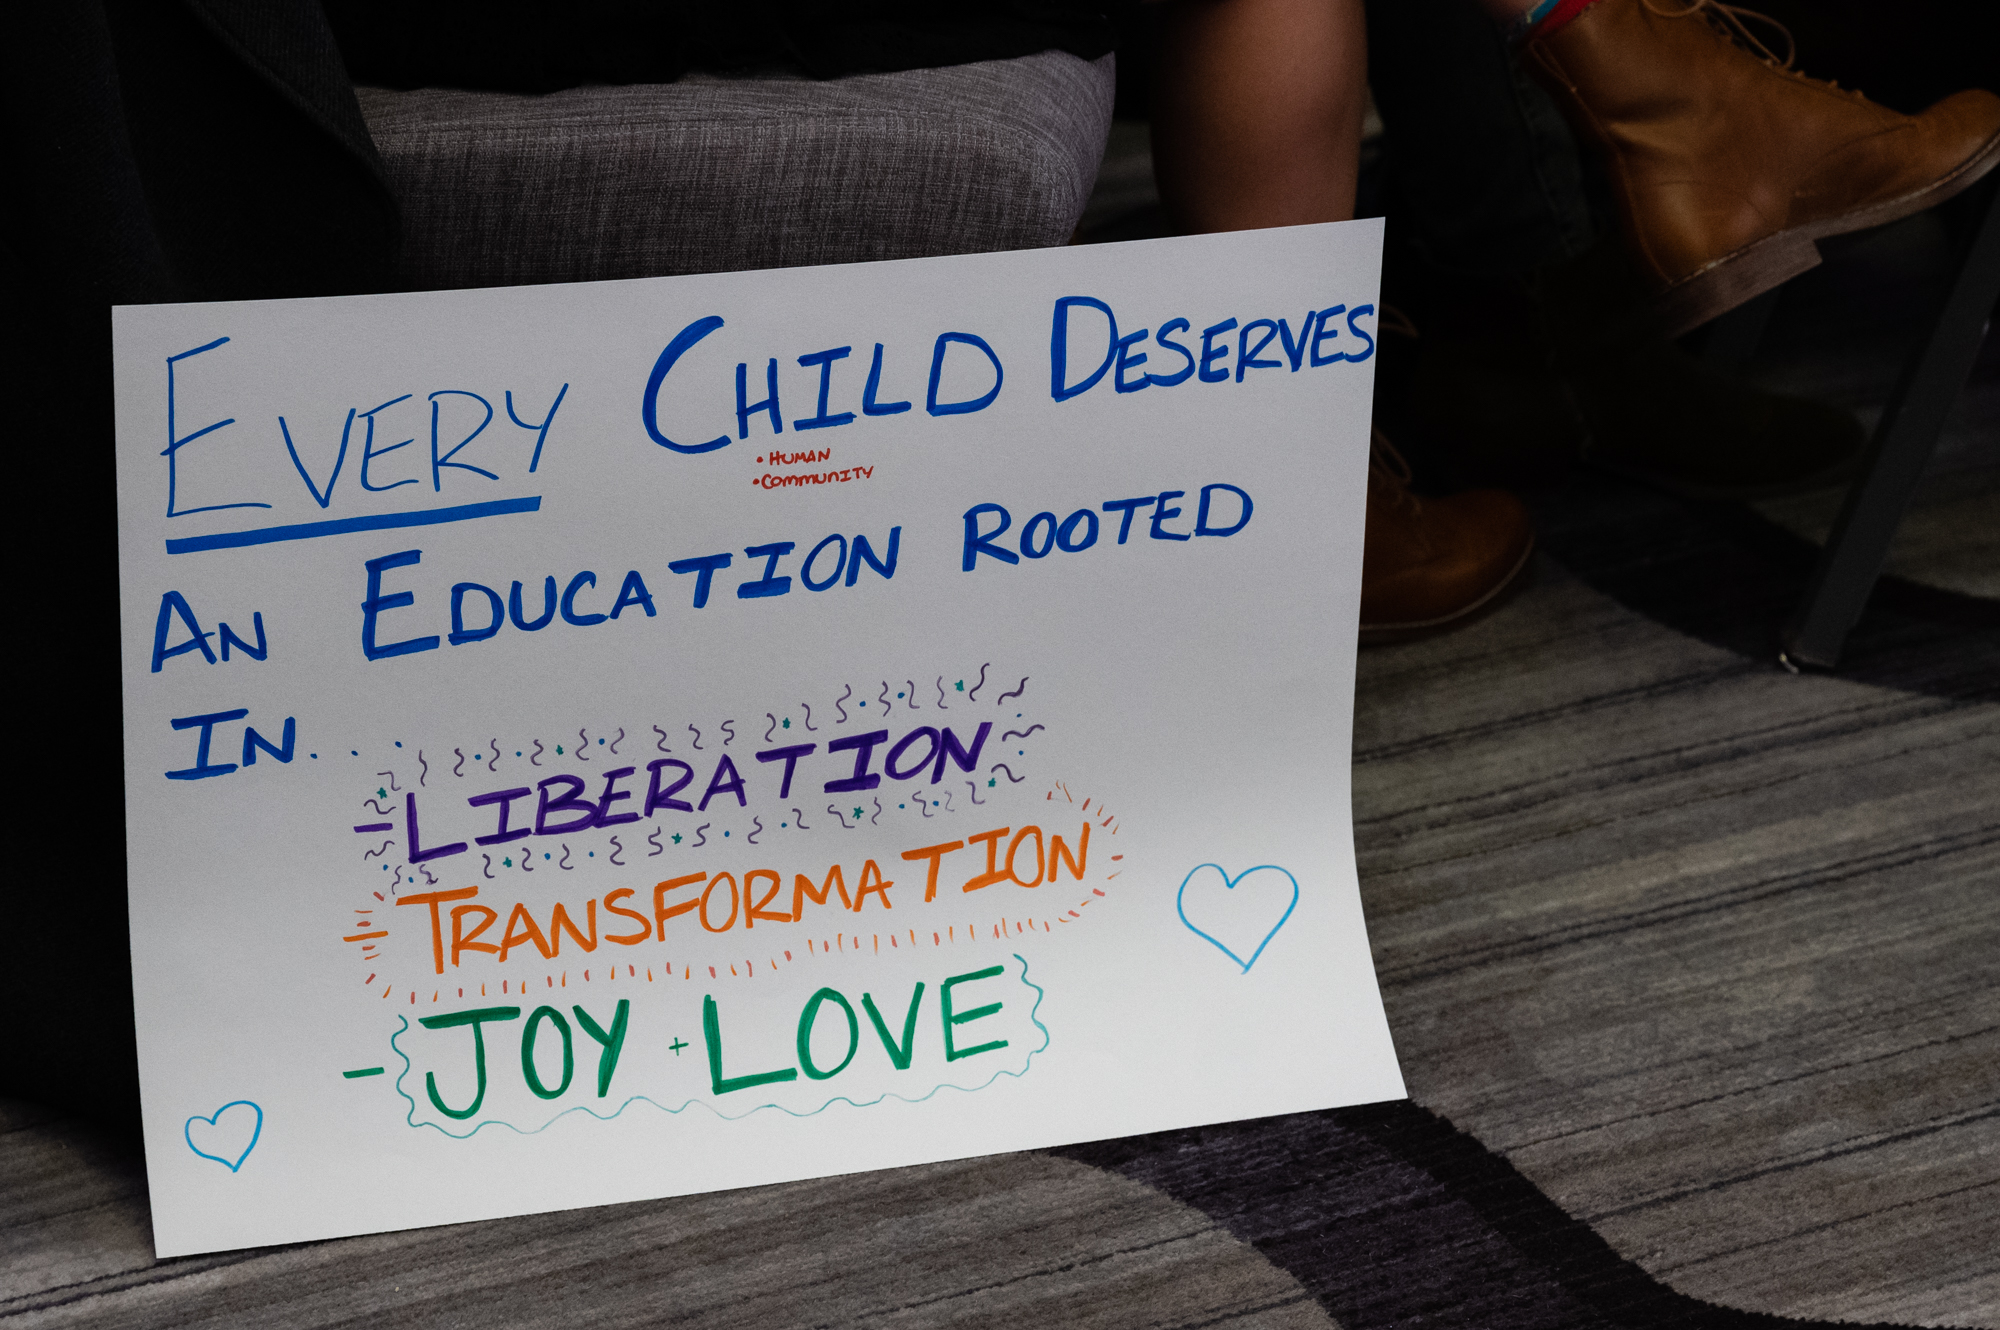 EVERY CHILD DESERVES
• HUMAN
• COMMUNITY
AN EDUCATION ROOTED
IN...
- LIBERATION
- TRANSFORMATION
- JOY + LOVE